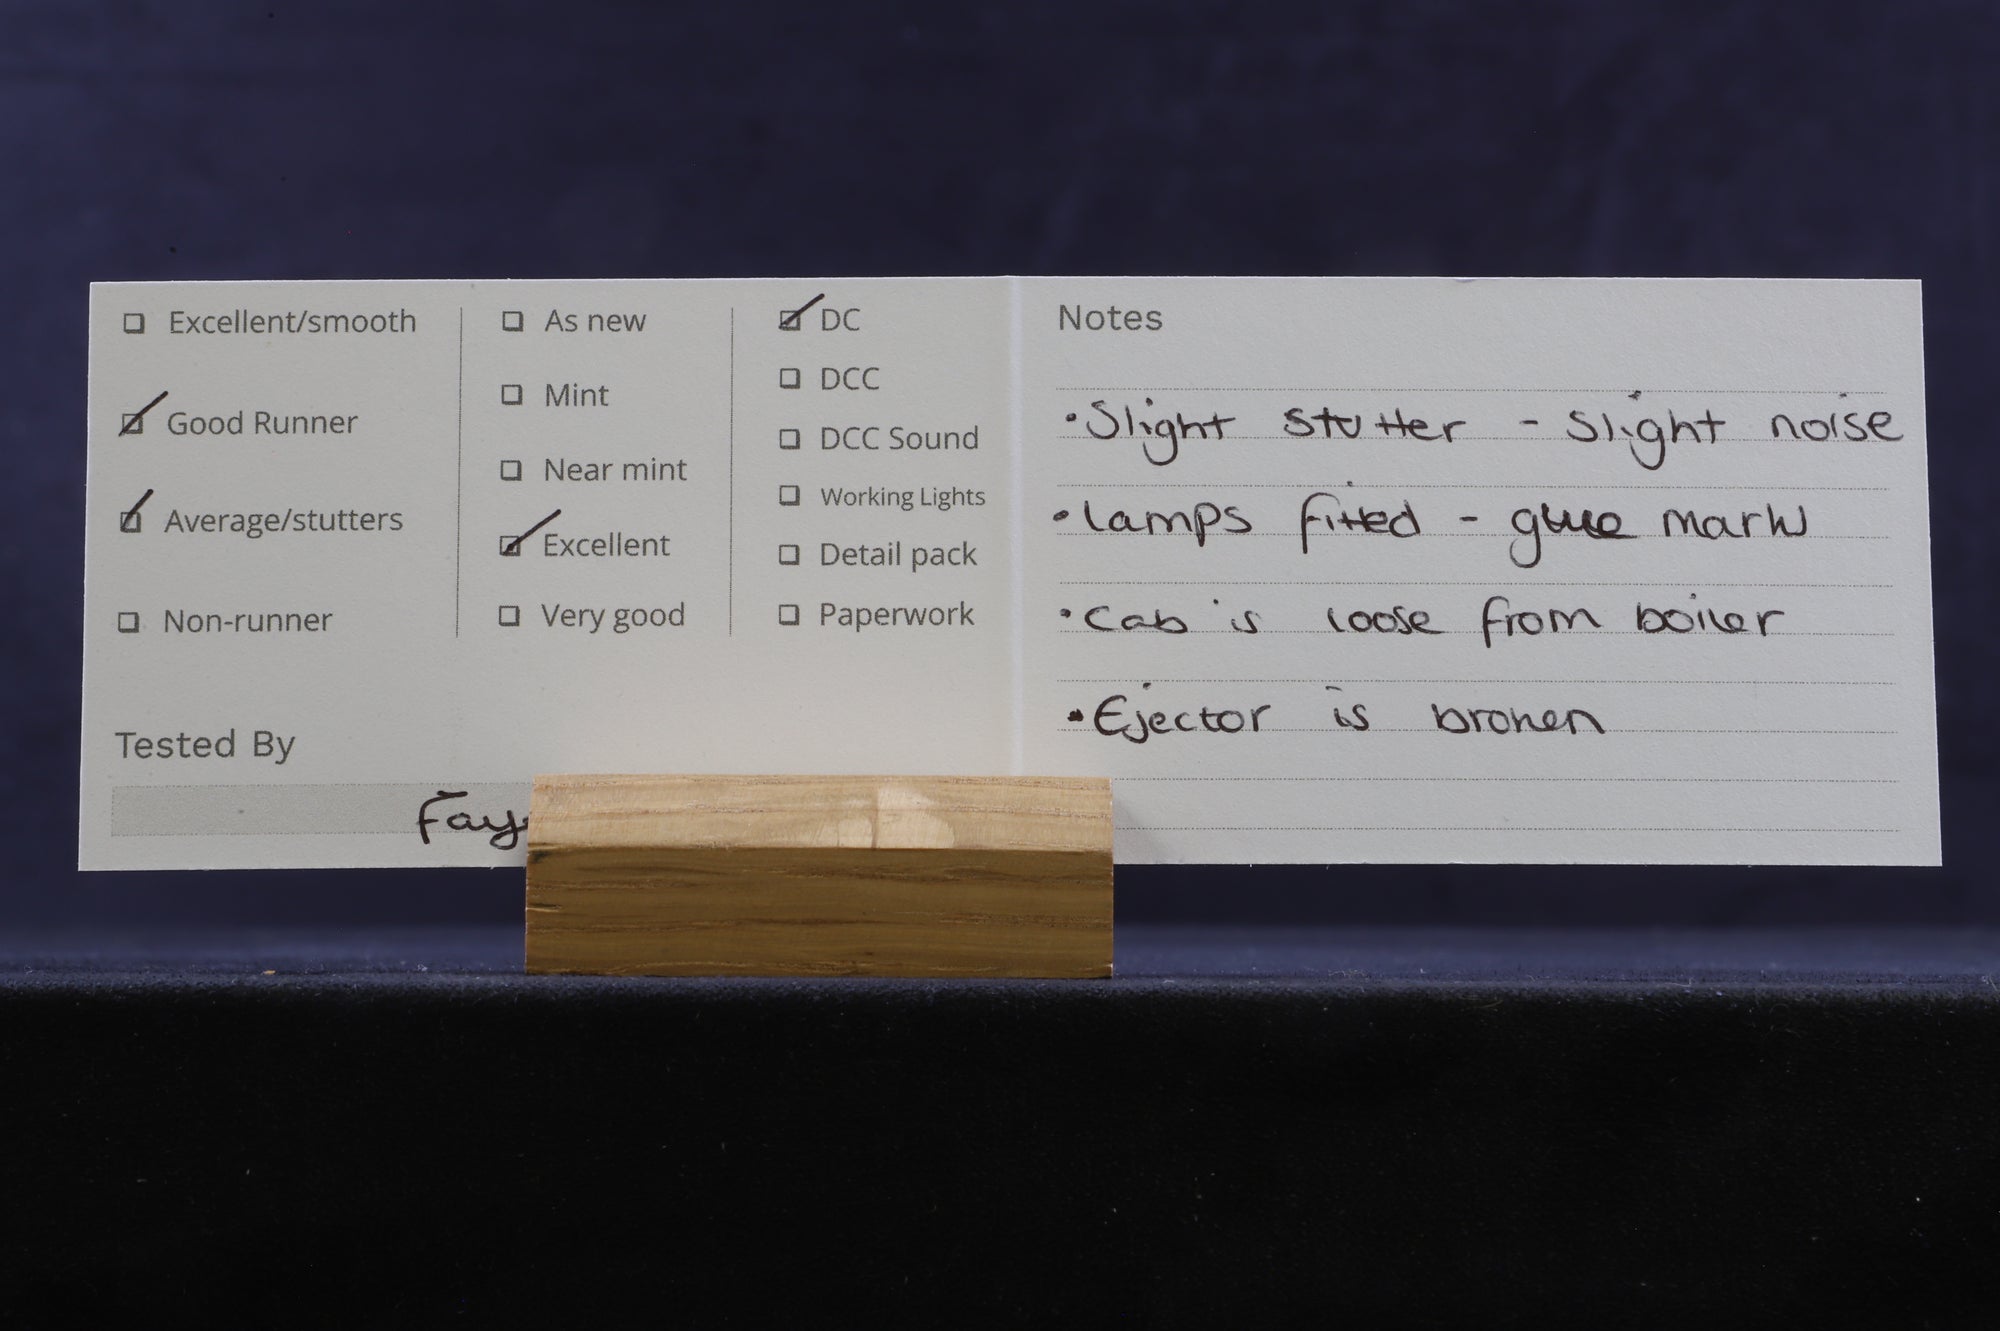 ☐ Excellent/smooth
☑ Good Runner
☑ Average/stutters
☐ Non-runner
☐ As new
☐ Mint
☐ Near mint
☑ Excellent
☐ Very good
☑ DC
☐ DCC
☐ DCC Sound
☐ Working Lights
☐ Detail pack
☐ Paperwork
Tested By
Fay
Notes
• Slight stutter - slight noise
• Lamps fitted - glue mark
• Cab is loose from boiler
• Ejector is broken